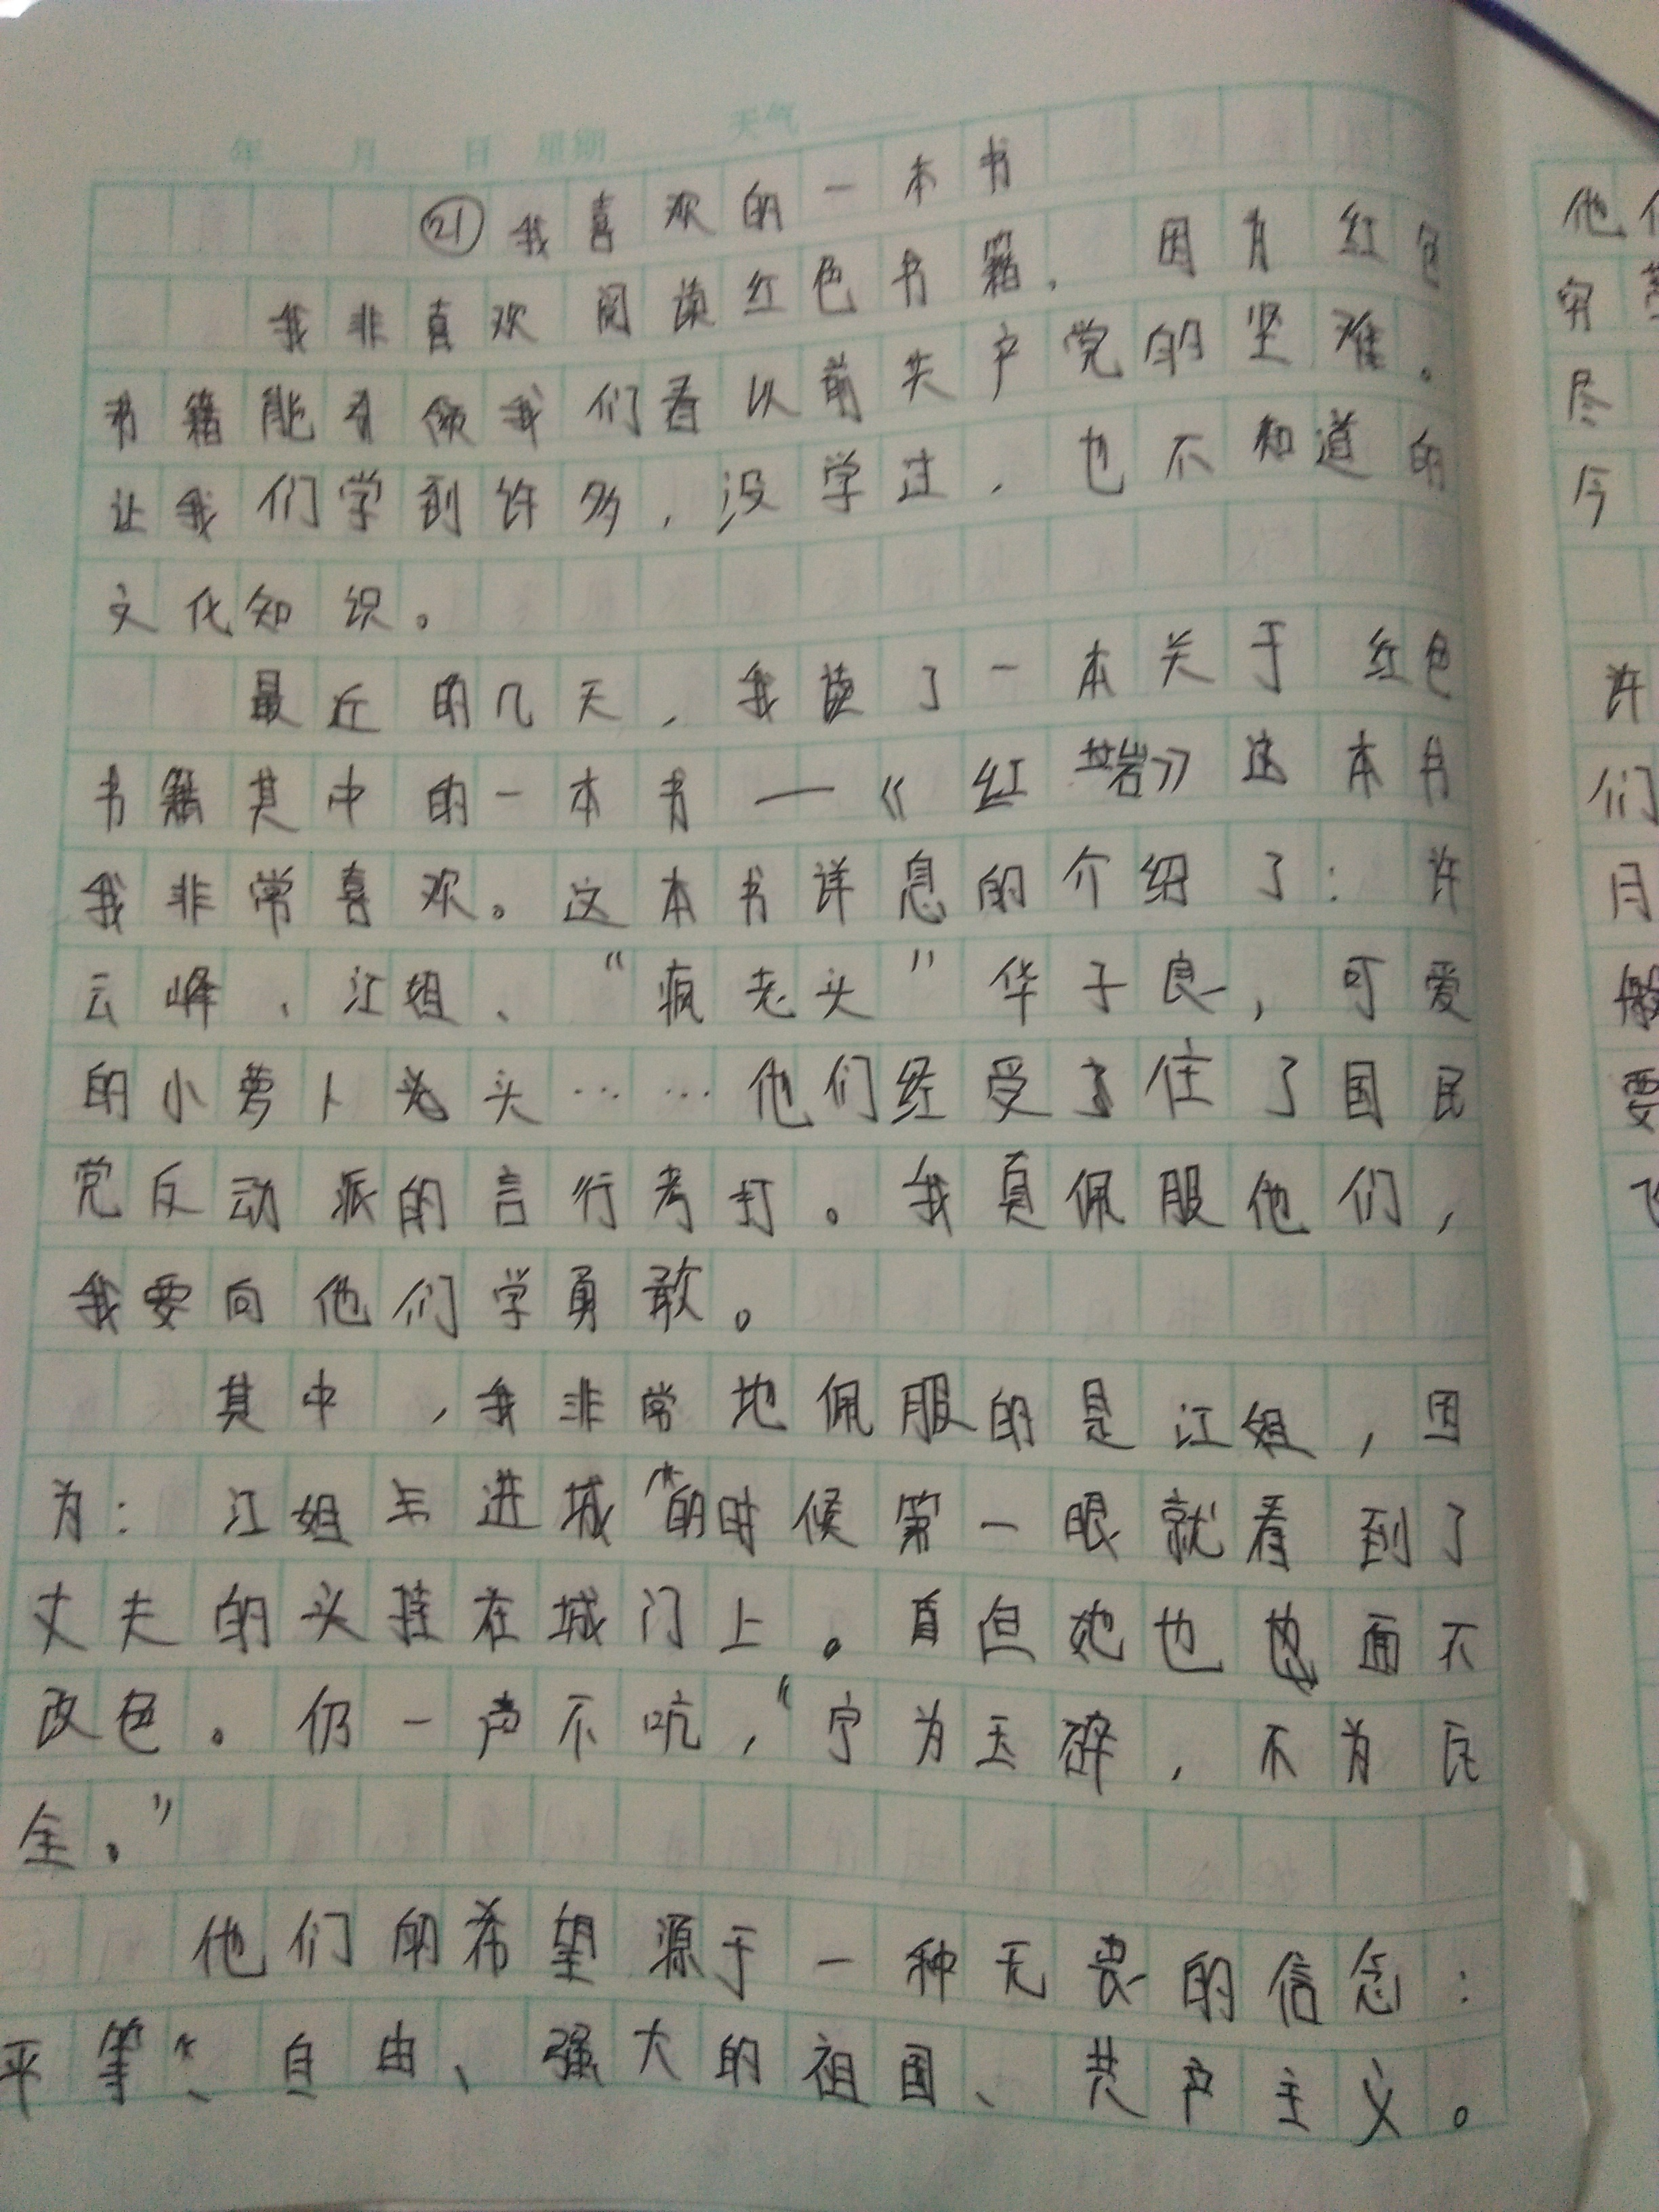 年 月 日 星期 天气
㉑我喜欢的一本书
我非喜欢阅读红色书籍，因有红色
书籍能有领我们看以前共产党的坚难。
让我们学到许多，没学过，也不知道的
文化知识。
最近的几天，我读了一本关于红色
书籍其中的一本书—《红岩》这本书
我非常喜欢。这本书详息的介绍了：许
云峰、江姐、“疯老头”华子良，可爱
的小萝卜头……他们经受住了国民
党反动派的言行考打。我真佩服他们，
我要向他们学勇敢。
其中，我非常地佩服的是江姐，因
为：江姐进城的时候第一眼就看到了
丈夫的头挂在城门上。但她也面不
改色。仍一声不吭，“宁为玉碎，不为瓦
全。”
他们的希望源于一种无畏的信念：
平等、自由、强大的祖国、共产主义。
他
穷
尽
今
许
们
月
般
要